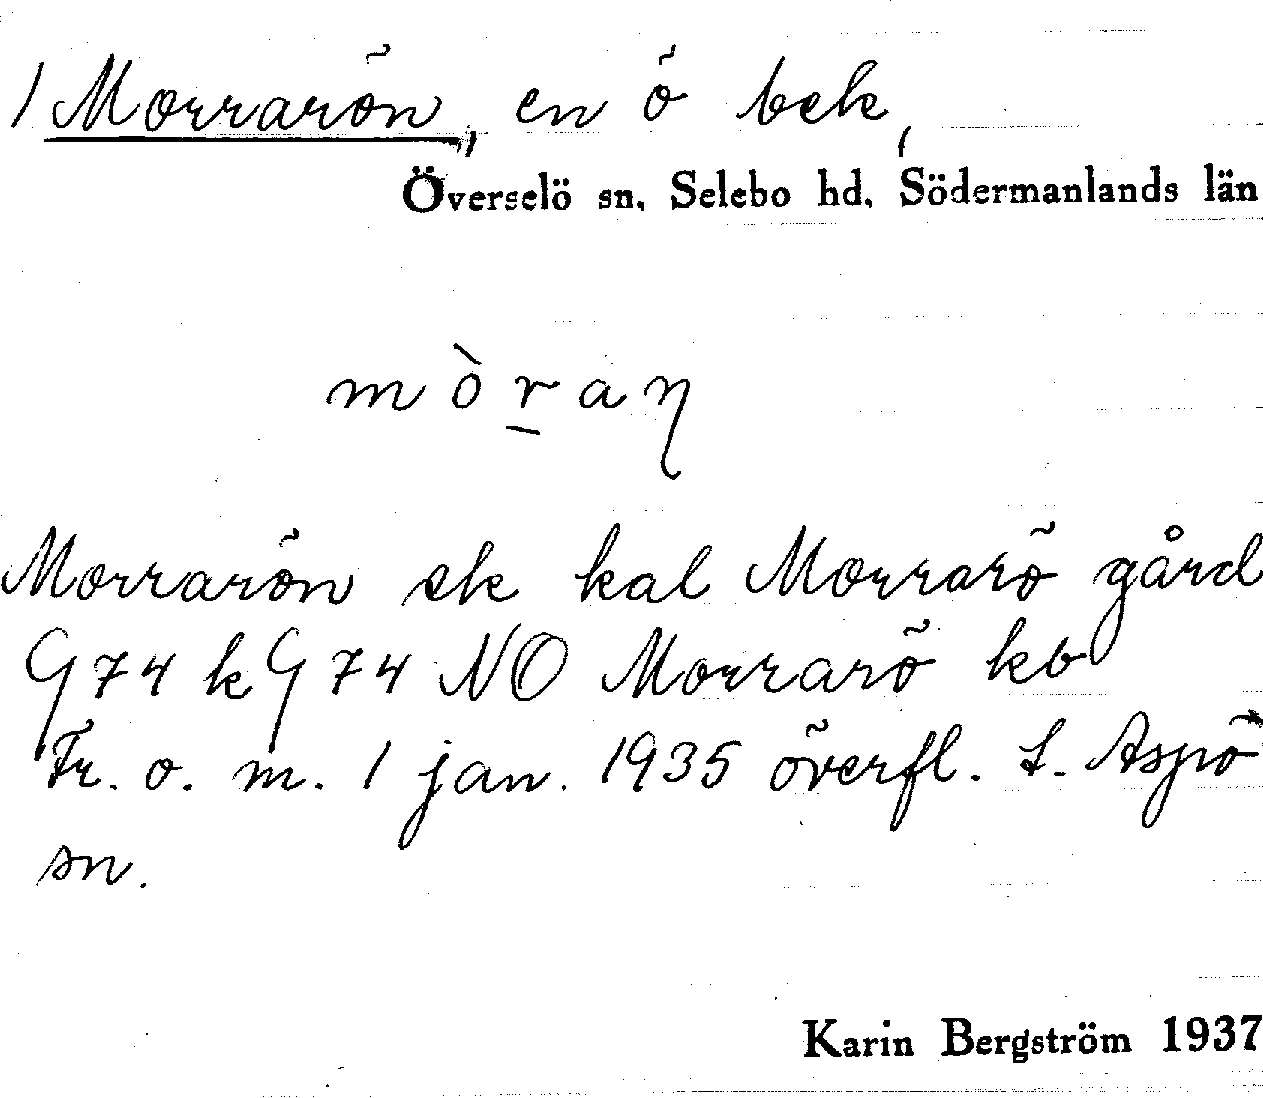 1 Morrarön, en ö bek,
Överselö sn, Selebo hd, Södermanlands län
mòr̠aη
Morrarön ek kal Morrarö gård
G74 k G74 NO Morrarö kb
Fr. o. m. 1 jan. 1935 överfl. t. Aspö
sn.
Karin Bergström 1937